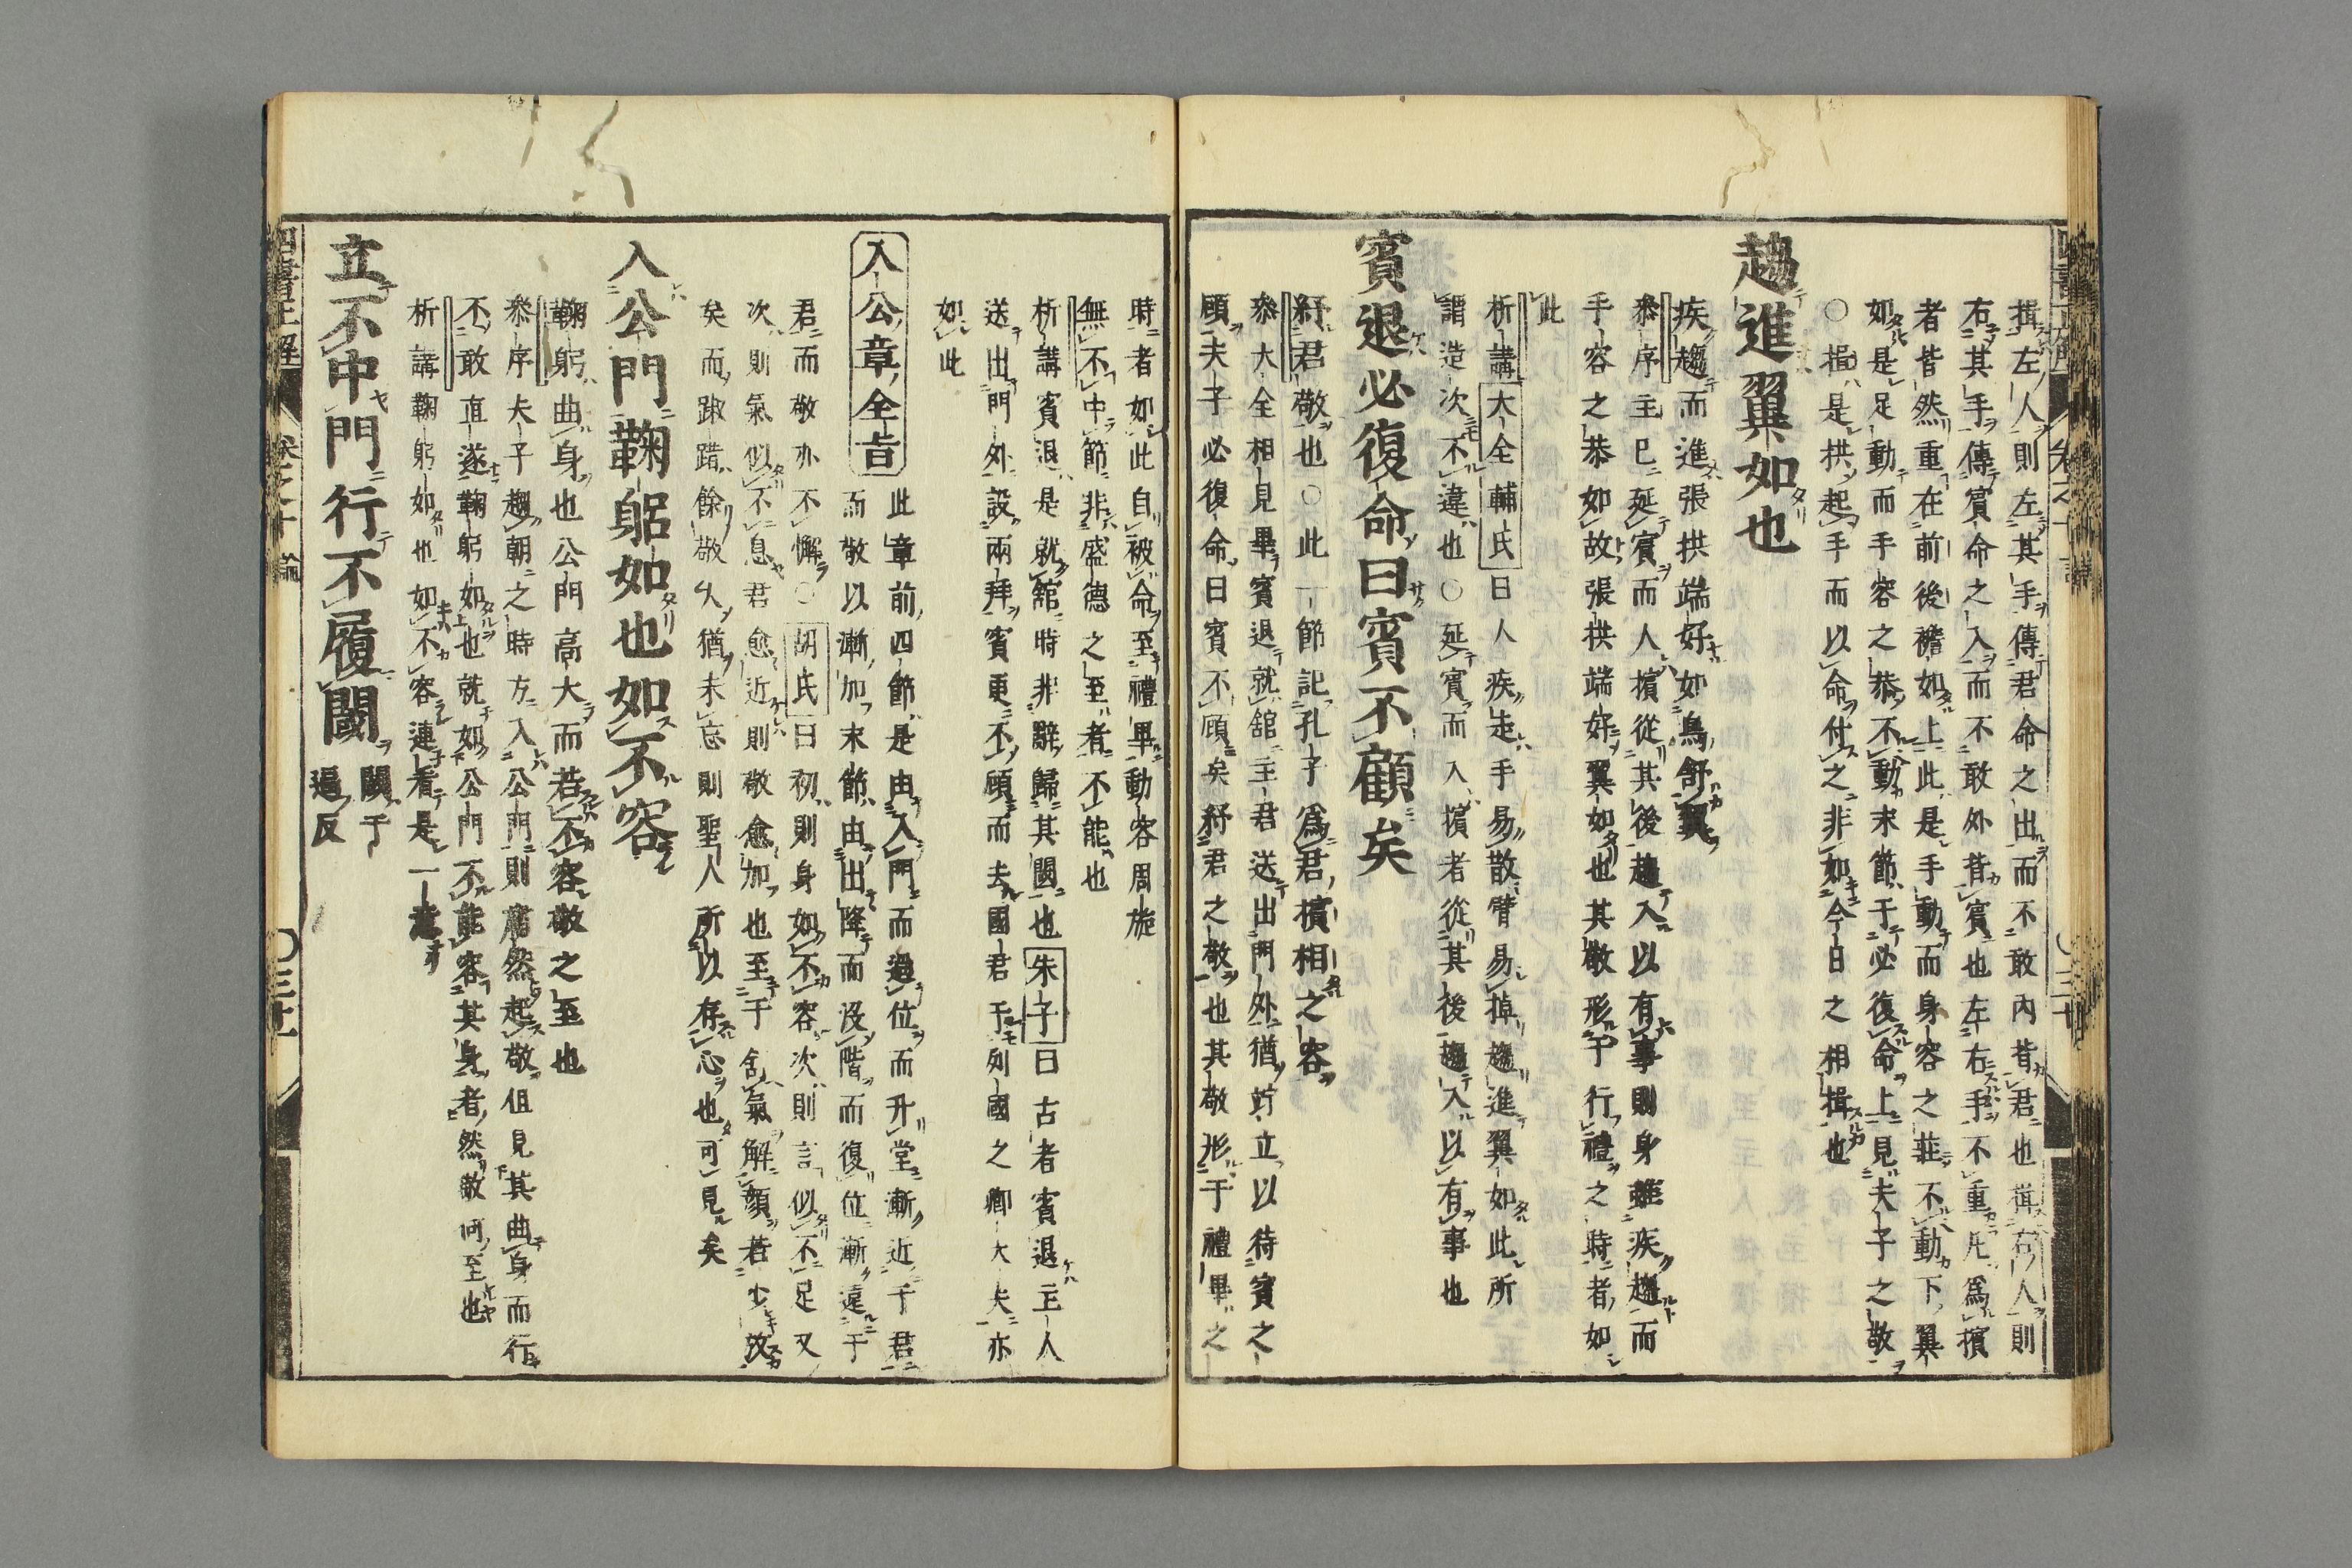 揖左人則左其手傳君命之出而不敢內背君也揖右人則
右其手傳賓命之入而不敢外背賓也左右手不重凡爲擯
者皆然重在前後襜如上此是手動而身容之莊不動下翼
如是足動而手容之恭不動末節于必復命上見夫子之敬
○揖是拱起手而以命付之非如今日之相揖也
趨進翼如也
疾趨而進張拱端好如鳥舒翼
叅序主已延賓而人擯從其後趨入以有事則身雖疾趨而
手容之恭如故張拱端好翼如也其敬形于行禮之時者如
此
析講大全輔氏曰人疾走手易散臂易掉趨進翼如此所
謂造次不違也○延賓而入擯者從其後趨入以有事也
賓退必復命曰賓不顧矣
紓君敬也○此一節記孔子爲君擯相之容
叅大全相見畢賓退就舘主君送出門外猶竚立以待賓之
顧夫子必復命曰賓不顧矣紓君之敬也其敬形于禮畢之
時者如此自被命至禮畢動容周旋
無不中節非盛德之至者不能也
析講賓退是就舘時非辭歸其國也朱子曰古者賓退主人
送出門外設兩拜賓更不顧而去國君于列國之卿大夫亦
如此
入公章全旨此章前四節是由入門而過位而升堂漸近于君
而敬以漸加末節由出降而沒階而復位漸遠于
君而敬亦不懈○胡氏曰初則身如不容次則言似不足又
次則氣似不息君愈近則敬愈加也至于舍氣解顏若少放
矣而踧踖餘敬久猶未忘則聖人所以存心也可見矣
入公門鞠躬如也如不容
鞠躬曲身也公門高大而若不容敬之至也
叅序夫子趨朝之時方入公門則肅然起敬但見其曲身而行
不敢直遂鞠躬如也就如公門不能容其身者然敬何至也
析講鞠躬如也如不容連看是一意
立不中門行不履閾閾于逼反